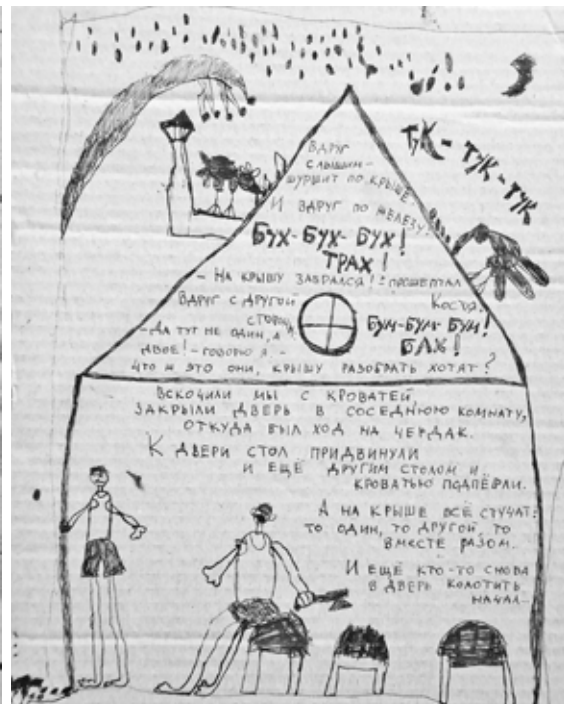 ВДРУГ
СЛЫШИМ -
ШУРШИТ ПО КРЫШЕ.
И ВДРУГ ПО ЖЕЛЕЗУ:
ТУК - ТУК - ТУК
БУХ - БУХ - БУХ!
ТРАХ!
- НА КРЫШУ ЗАБРАЛСЯ! - ПРОШЕПТАЛ
КОСТЯ.
ВДРУГ С ДРУГОЙ
СТОРОНЫ
БУМ-БУМ-БУМ!
БАХ!
- ДА ТУТ НЕ ОДИН, А
ДВОЕ! - ГОВОРЮ Я. -
ЧТО Ж ЭТО ОНИ, КРЫШУ РАЗОБРАТЬ ХОТЯТ?
ВСКОЧИЛИ МЫ С КРОВАТЕЙ,
ЗАКРЫЛИ ДВЕРЬ В СОСЕДНЮЮ КОМНАТУ,
ОТКУДА БЫЛ ХОД НА ЧЕРДАК.
К ДВЕРИ СТОЛ ПРИДВИНУЛИ
И ЕЩЁ ДРУГИМ СТОЛОМ И
КРОВАТЬЮ ПОДПЁРЛИ.
А НА КРЫШЕ ВСЁ СТУЧАТ:
ТО ОДИН, ТО ДРУГОЙ, ТО
ВМЕСТЕ РАЗОМ.
И ЕЩЁ КТО-ТО СНОВА
В ДВЕРЬ КОЛОТИТЬ
НАЧАЛ.